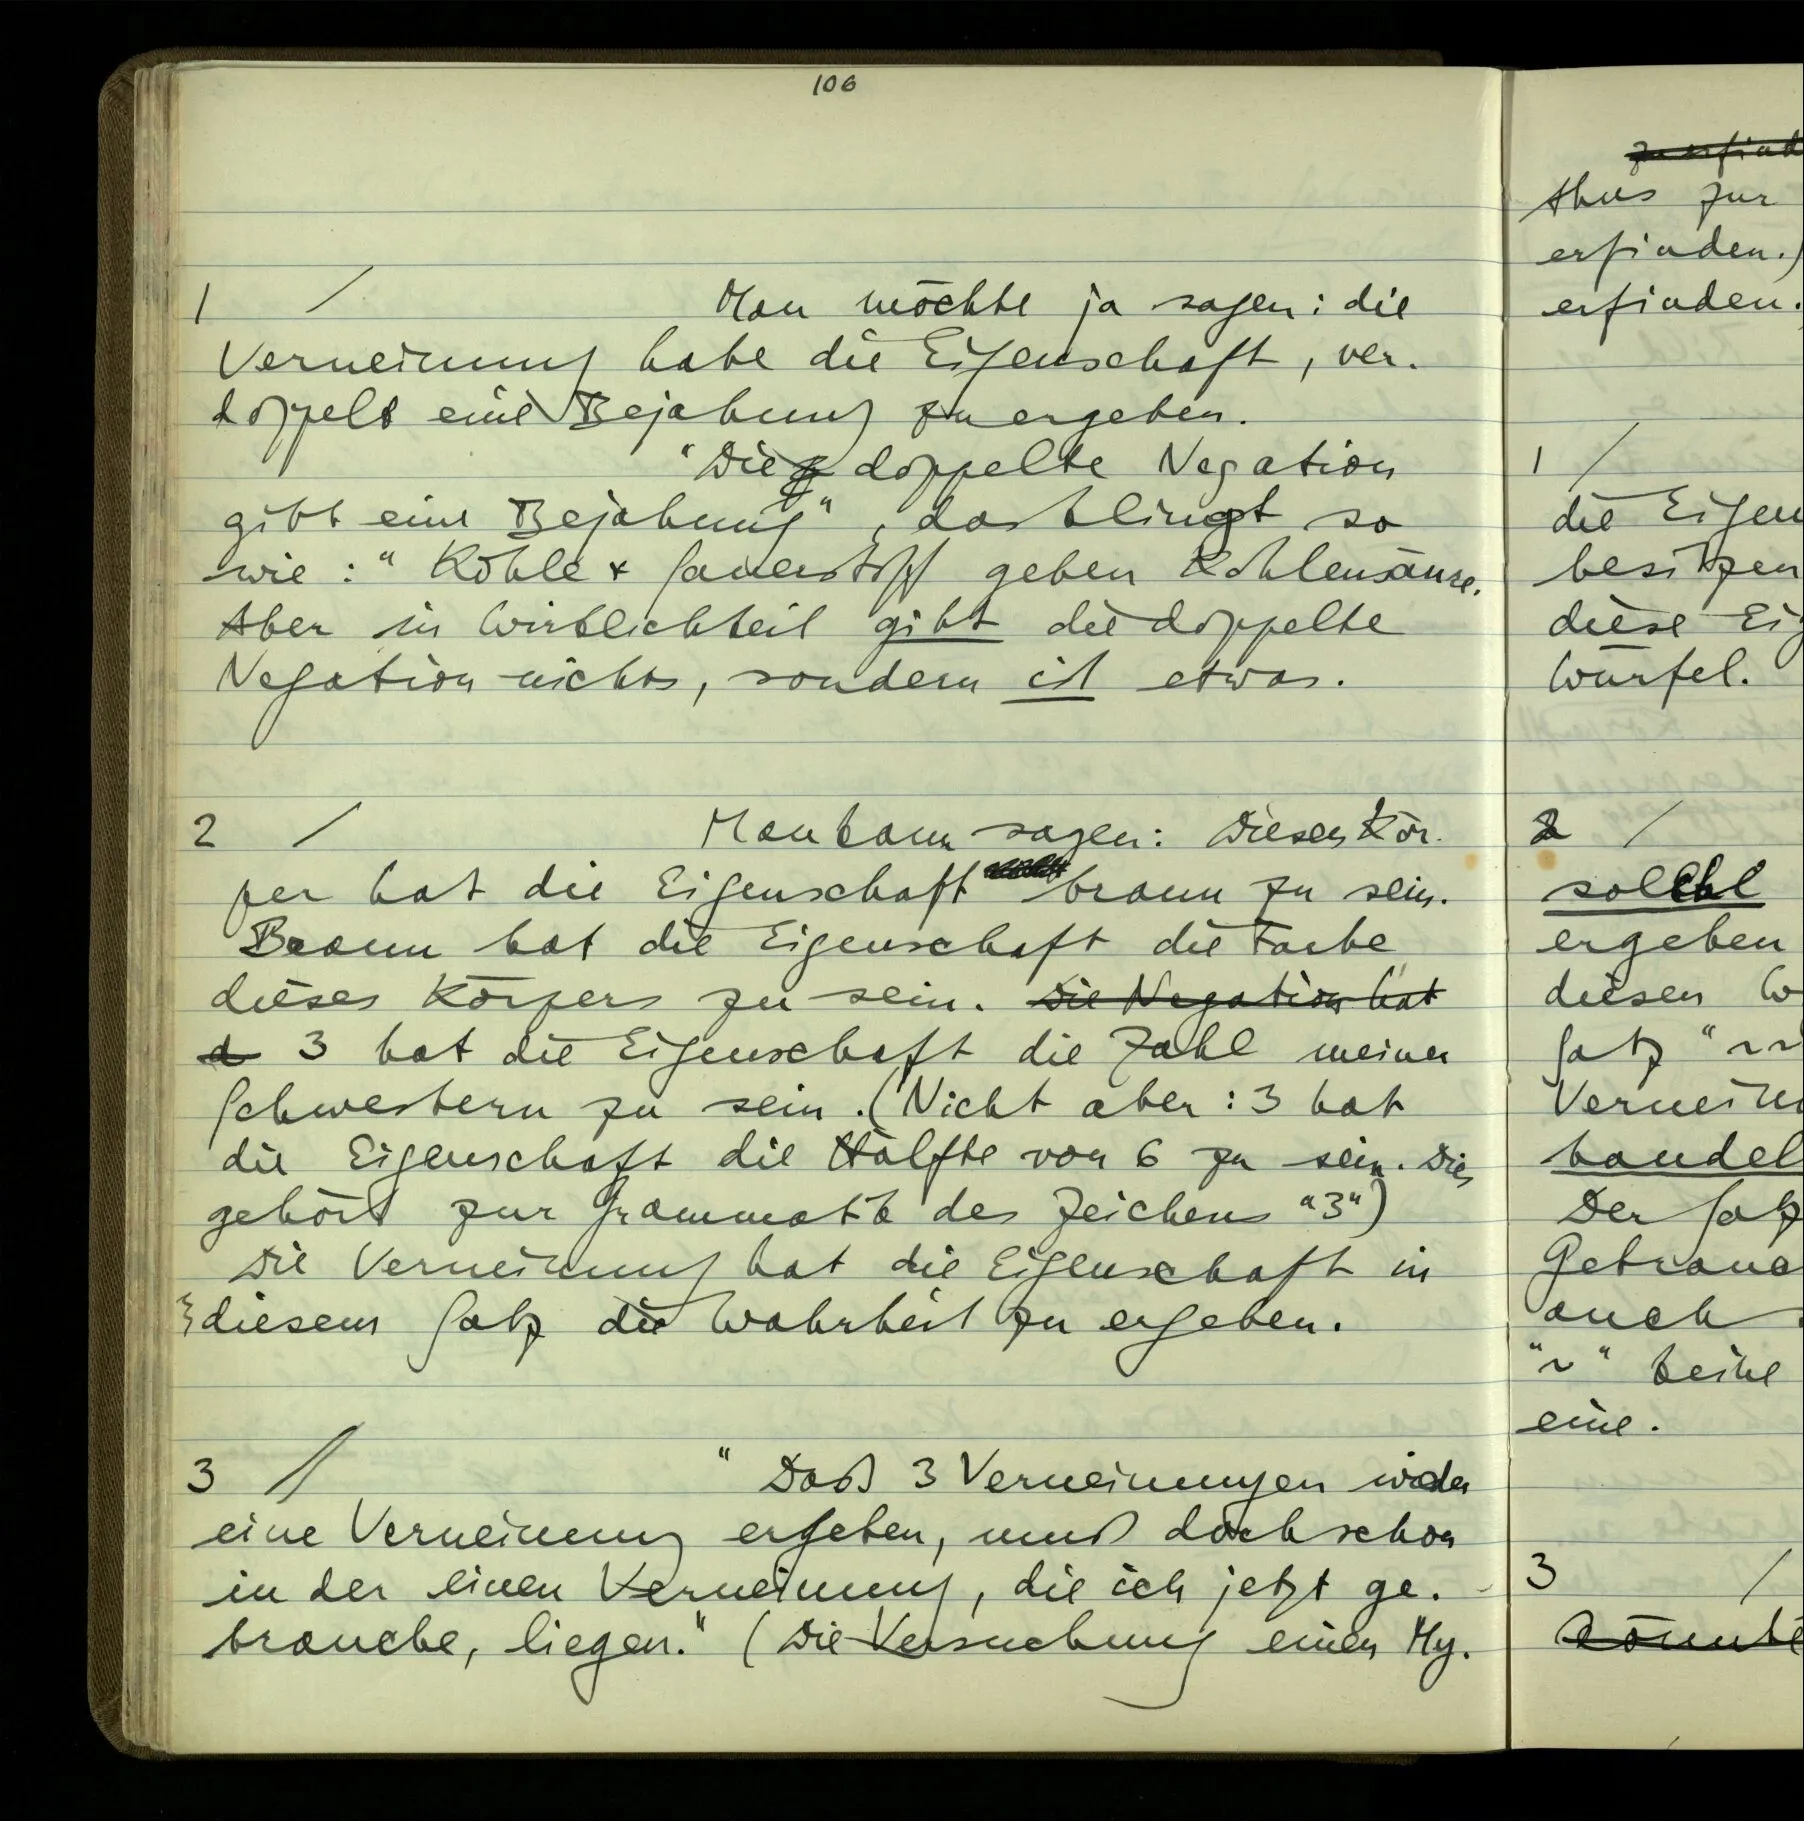 106
1 / Man möchte ja sagen: die
Verneinung habe die Eigenschaft, ver-
doppelt eine Bejahung zu ergeben.
"Die doppelte Negation
gibt eine Bejahung", das klingt so
wie: "Kohle + Sauerstoff geben Kohlensäure.
Aber in Wirklichkeit gibt die doppelte
Negation nichts, sondern ist etwas.
2 / Man kann sagen: Dieser Kör-
per hat die Eigenschaft braun zu sein.
Braun hat die Eigenschaft die Farbe
dieses Körpers zu sein. Die Negation hat
d 3 hat die Eigenschaft die Zahl meiner
Schwestern zu sein. (Nicht aber: 3 hat
die Eigenschaft die Hälfte von 6 zu sein. Dies
gehört zur Grammatik des Zeichens "3")
Die Verneinung hat die Eigenschaft in
diesem Satz die Wahrheit zu ergeben.
3 // "Daß 3 Verneinungen wieder
eine Verneinung ergeben, muß doch schon
in der einen Verneinung, die ich jetzt ge-
brauche, liegen." (Die Versuchung einen My-
zu erfind
thus zur
erfinden.)
erfinden.
1 /
die Eigen
besitzen
diese Eig
Würfel.
2 /
solche
ergeben
diesen W
Satz "~~
Verneinu
handel
Der Satz
Gebrauc
auch
"~" keine
eine.
3 /
könnte